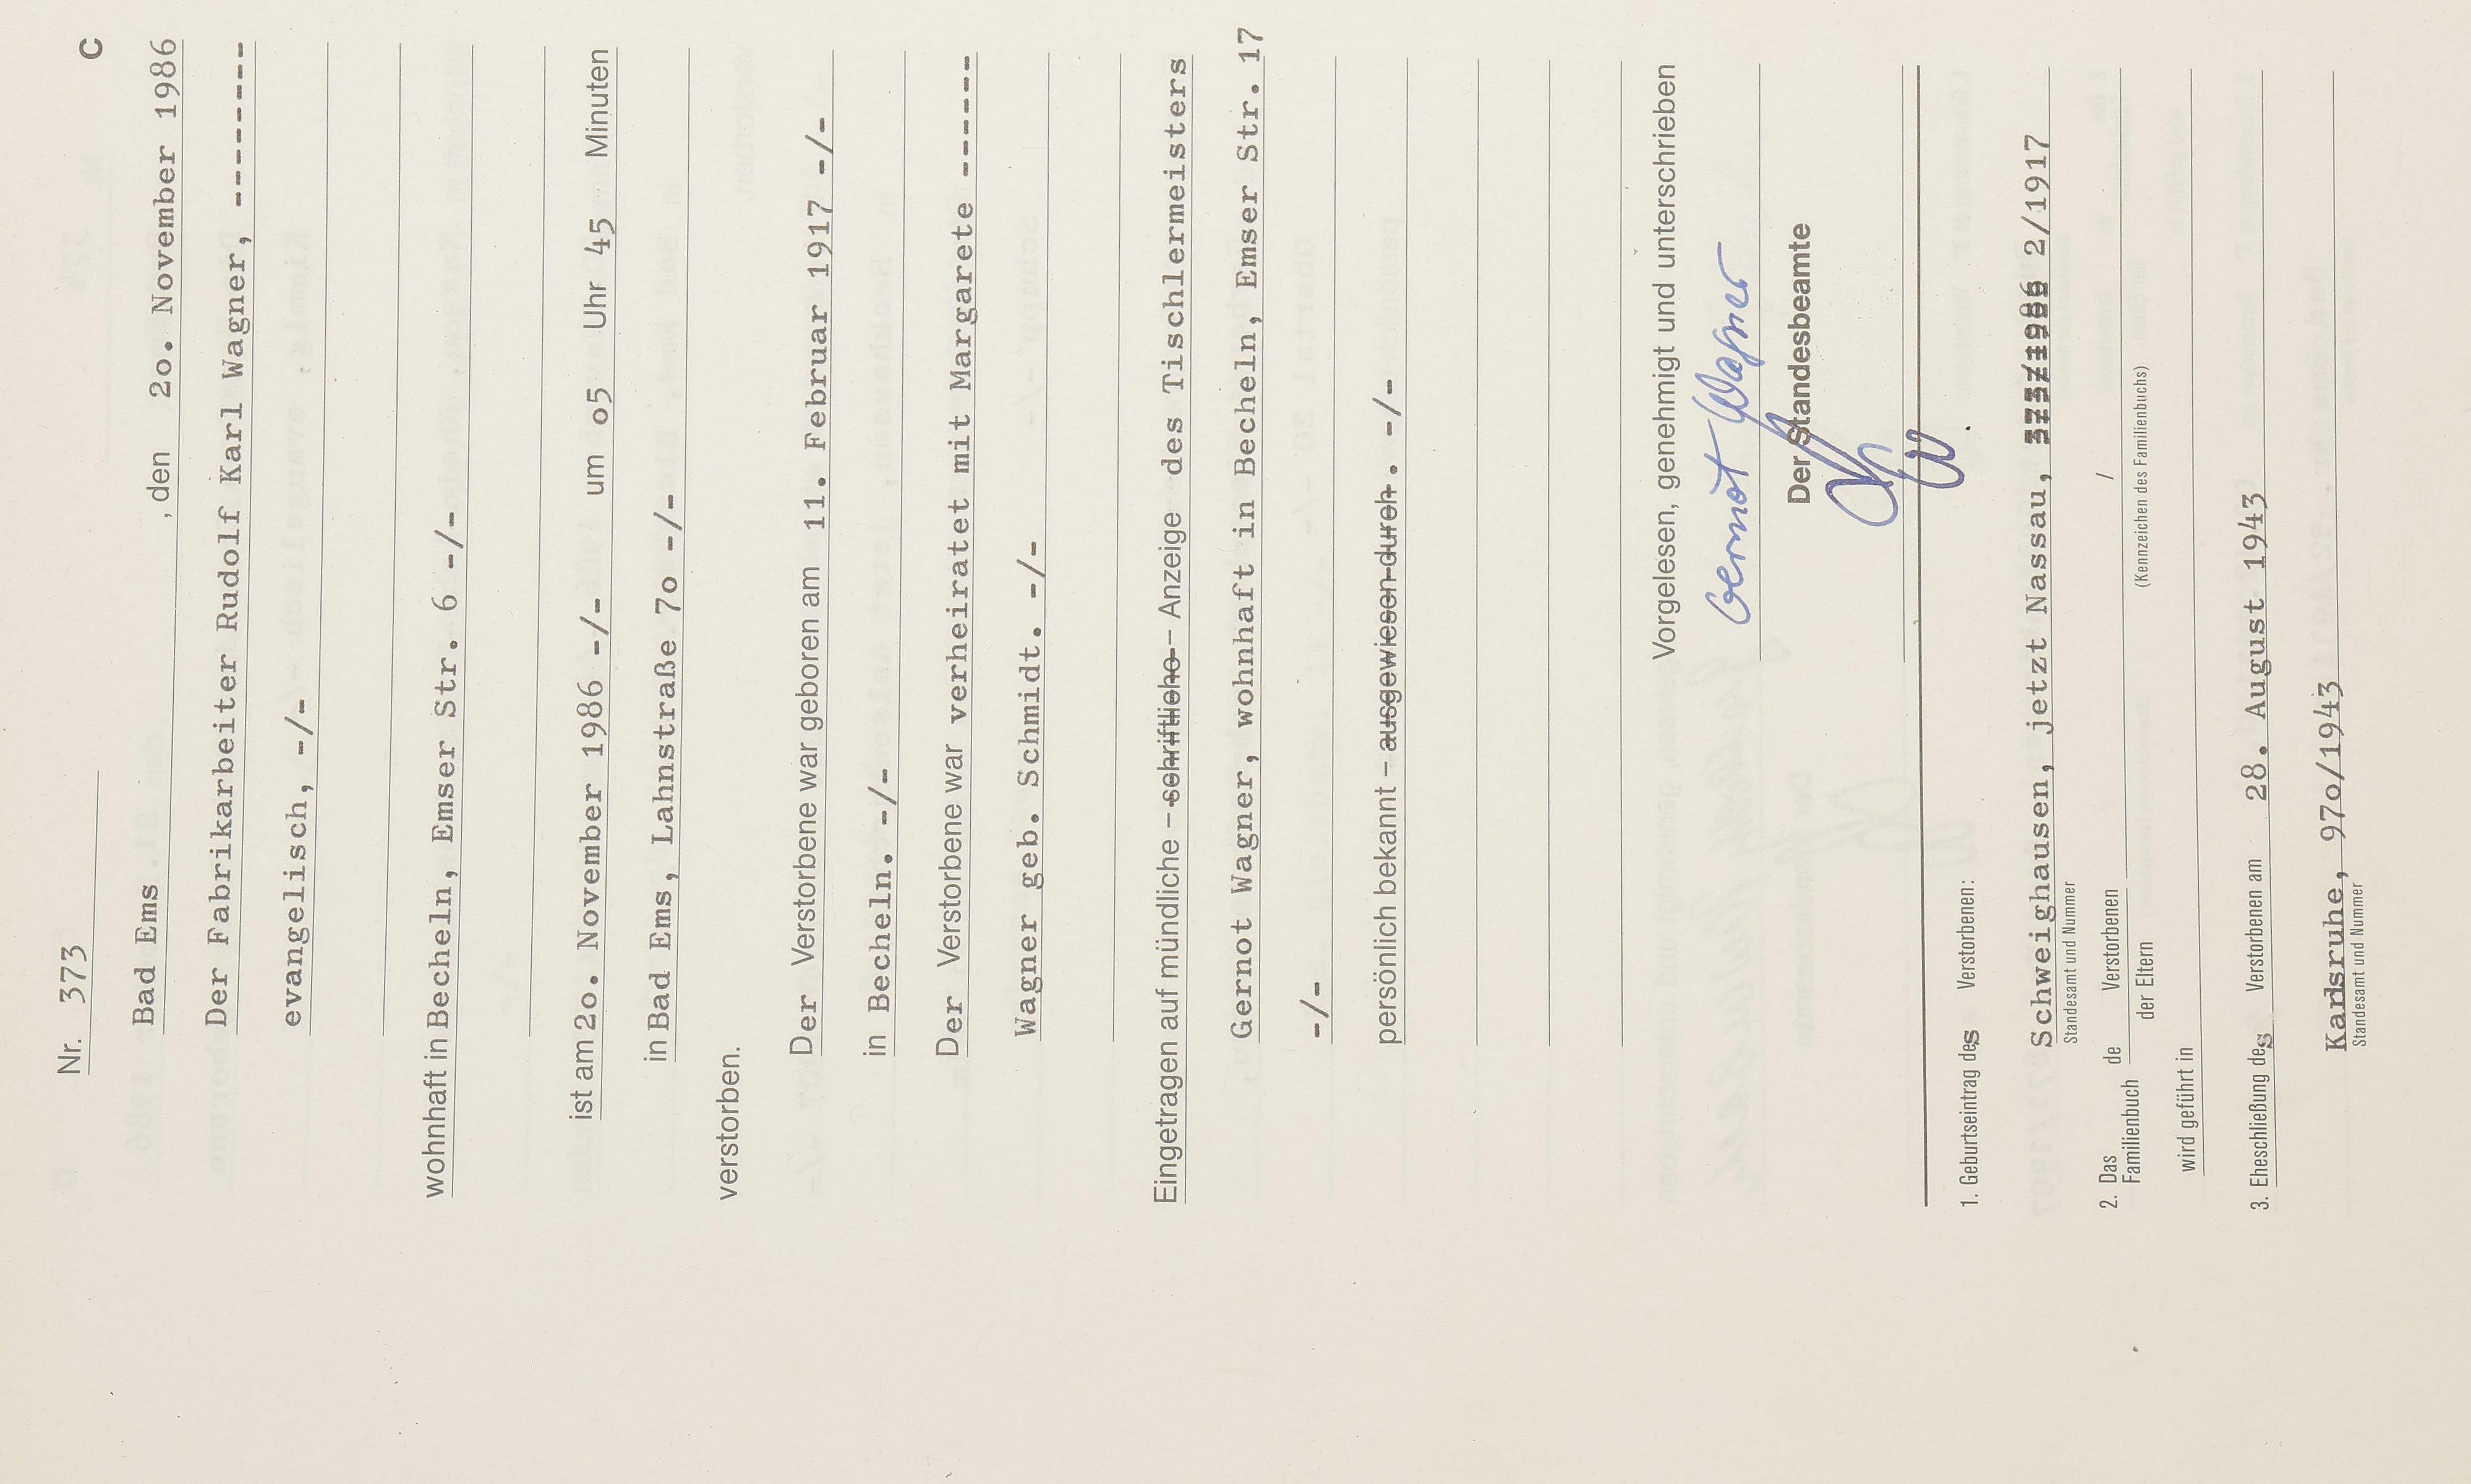 Nr. 373
C
Bad Ems , den 2o. November 1986
Der Fabrikarbeiter Rudolf Karl Wagner, --------
evangelisch, -/-
wohnhaft in Becheln, Emser Str. 6 -/-
ist am 2o. November 1986 -/- um o5 Uhr 45 Minuten
in Bad Ems, Lahnstraße 7o -/-
verstorben.
Der Verstorbene war geboren am 11. Februar 1917 -/-
in Becheln. -/-
Der Verstorbene war verheiratet mit Margarete ------
Wagner geb. Schmidt. -/-
Eingetragen auf mündliche – schriftliche – Anzeige des Tischlermeisters
Gernot Wagner, wohnhaft in Becheln, Emser Str. 17
-/-
persönlich bekannt – ausgewiesen durch . -/-
Vorgelesen, genehmigt und unterschrieben
Gernot Wagner
Der Standesbeamte
1. Geburtseintrag des Verstorbenen:
Schweighausen, jetzt Nassau, 373/1986 2/1917
Standesamt und Nummer
2. Das Familienbuch de Verstorbenen der Eltern /
(Kennzeichen des Familienbuchs)
wird geführt in
3. Eheschließung des Verstorbenen am 28. August 1943
Karlsruhe, 97o/1943
Standesamt und Nummer